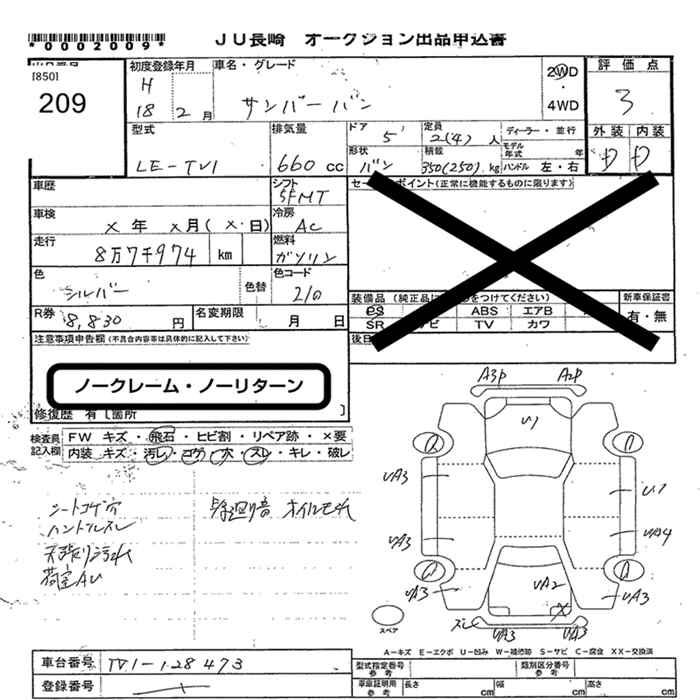 *0002009*
JU長崎 オークション出品申込書
[850]
209
初度登録年月
H
18 2月
車名・グレード
サンバーバン
2WD
・
4WD
評価点
3
外装 内装
D D
型式
LE-TV1
排気量
660cc
ドア
5
形状
バン
定員
2(4)人
積載
350(250)kg
ディーラー・並行
モデル年式 年
ハンドル 左・右
車歴
シフト
5FMT
セールスポイント(正常に機能するものに限ります)
車検
X年 X月(X・日)
冷房
AC
走行
8万7千974 km
燃料
ガソリン
色
シルバー
色替
色コード
210
R券
8,830円
名変期限
月 日
装備品(純正品に をつけてください)
PS ABS エアB
SR ナビ TV カワ
新車保証書
有・無
注意事項申告欄(不具合内容等は具体的に記入して下さい)
ノークレーム・ノーリターン
修復歴 有[箇所 ]
検査員記入欄
FW キズ・飛石・ヒビ割・リペア跡・×要
内装 キズ・汚レ・コゲ・穴・スレ・キレ・破レ
シートコゲ穴
ハンドルスレ
天張り汚れ
荷室AU
異音 オイルモレ
A3P A2P
U1
UA3
U1
UA3 UA4
UA3 UA2 X UA3
スレ UA3 UA3
スペア
A-キズ E-エクボ U-凹み W-補修跡 S-サビ C-腐食 XX-交換済
車台番号 TV1-128473
登録番号
型式指定番号 参考
類別区分番号 参考
車庫証明用 参考 長さ cm 幅 cm 高さ cm